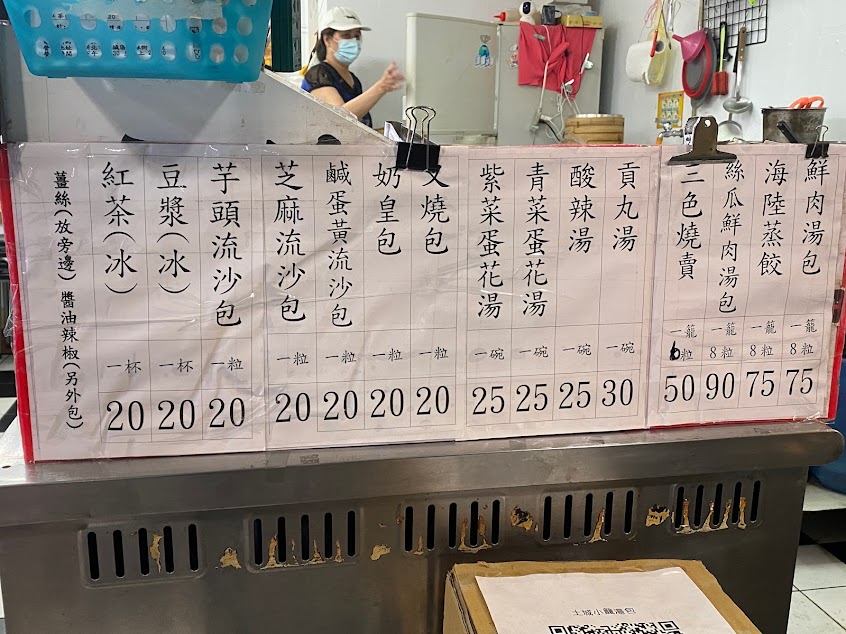 鮮肉湯包 一籠 8粒 75
海陸蒸餃 一籠 8粒 75
絲瓜鮮肉湯包 一籠 8粒 90
三色燒賣 一籠 6粒 50
貢丸湯 一碗 30
酸辣湯 一碗 25
青菜蛋花湯 一碗 25
紫菜蛋花湯 一碗 25
叉燒包 一粒 20
奶皇包 一粒 20
鹹蛋黃流沙包 一粒 20
芝麻流沙包 一粒 20
芋頭流沙包 一粒 20
豆漿(冰) 一杯 20
紅茶(冰) 一杯 20
薑絲(放旁邊) 醬油辣椒(另外包)
土城小籠湯包